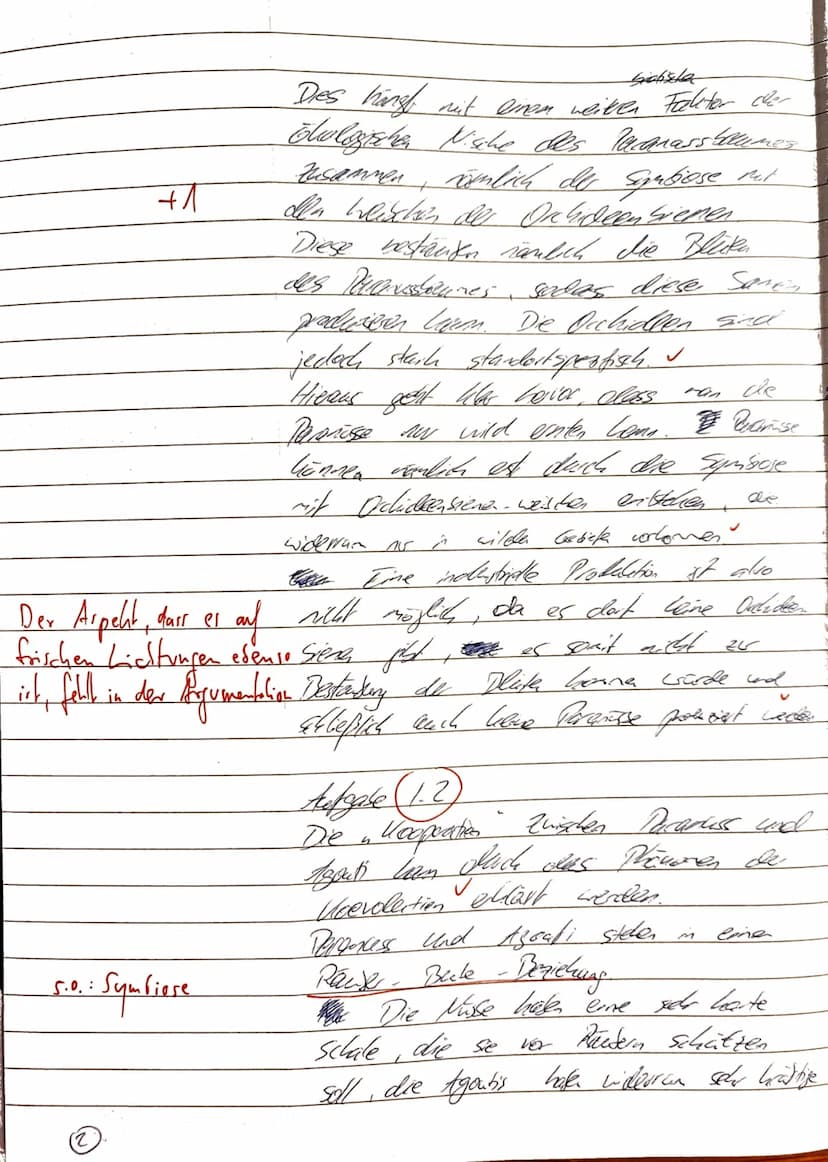 biotischen
Dies hängt mit einem weiteren Faktor der
ökologischen Nische des Paranussbaumes
zusammen, nämlich der Symbiose mit
+1
den Weibchen der Orchideenbienen
Diese bestäuben nämlich die Blüten
des Paranussbaumes, sodass dieser Samen
produzieren kann. Die Orchideen sind
jedoch stark standortspezifisch. ✓
Hieraus geht klar hervor, dass man die
Paranüsse nur wild ernten kann. Paranüsse
können nämlich erst durch die Symbiose
mit Orchideenbienen-weibchen entstehen, die
widerrum nur in wilden Gebieten vorkommen ✓
Eine industrielle Produktion ist also
Der Aspekt, dass es auf
nicht möglich, da es dort keine Orchideen
frischen Lichtungen ebenso
bienen gibt, es somit nicht zur
ist, fehlt in der Argumentation
Bestäubung der Blüten kommen würde und
schließlich auch keine Paranüsse produziert werden ✓
Aufgabe 1.2
Die „Kooperation" zwischen Paranuss und
Agouti kann durch das Phänomen der
Koevolution ✓ erklärt werden.
Paranuss und Agouti stehen in einer
s.o.: Symbiose
Räuber-Beute-Beziehung.
Die Nüsse haben eine sehr harte
Schale, die sie vor Räubern schützen
soll, die Agoutis haben widerrum sehr kräftige
2